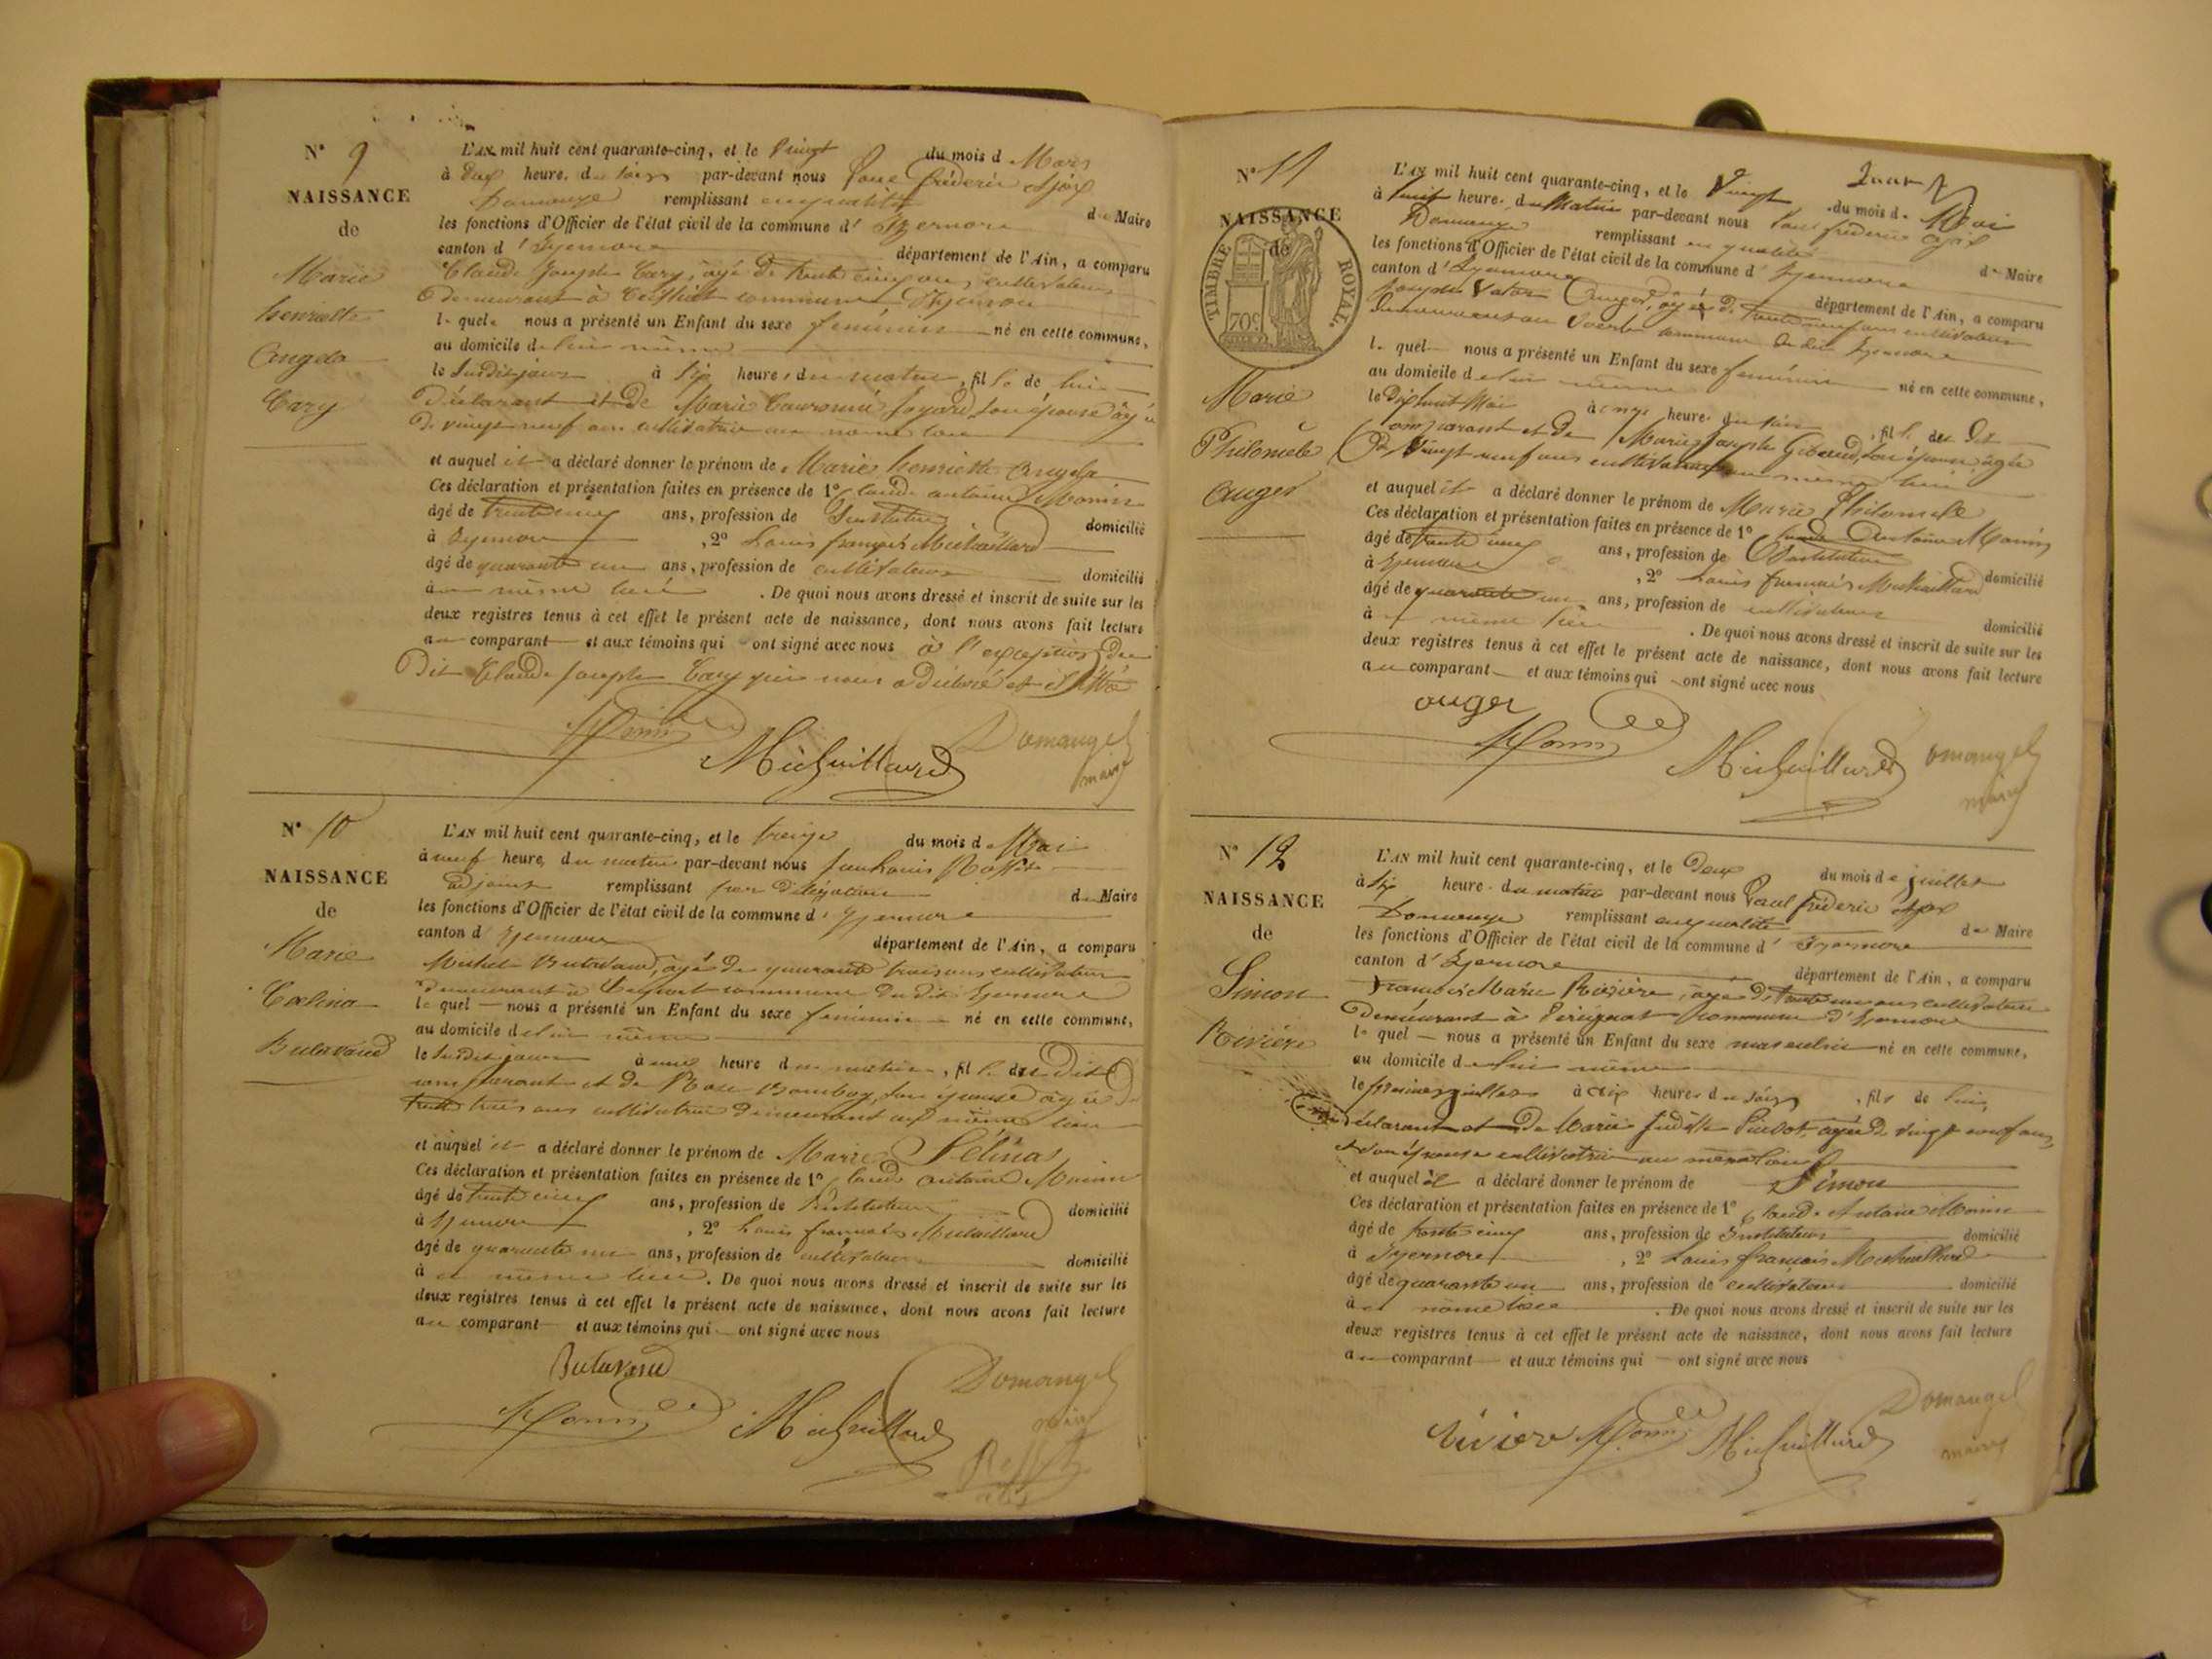 N° 9
NAISSANCE
de
Marie
henriette
Angela
Cary
L'AN mil huit cent quarante-cinq, et le vingt du mois d Mars
à six heure. du soir par-devant nous Paul fréderic Ajax
Domange remplissant en qualité
les fonctions d'Officier de l'état civil de la commune d' Izernore du Maire
canton d' Izernore département de l'Ain, a comparu
Claude Joseph Cary, âgé de trente cinq ans, cultivateur
demeurant à commune d'Izernore
le quel nous a présenté un Enfant du sexe féminin né en cette commune,
au domicile de lui même
le susdit jour à six heures du matin, fille de lui
Déclarant et de Marie son épouse âgée
De vingt neuf ans cultivatrice au même lieu
et auquel il a déclaré donner le prénom de Marie henriette Angela
Ces déclaration et présentation faites en présence de 1° Claude antoine Monin
âgé de trente cinq ans, profession de Instituteur domicilié
à Izernore , 2° Louis françois Michaillard
âgé de quarante un ans, profession de cultivateur domicilié
au même lieu . De quoi nous avons dressé et inscrit de suite sur les
deux registres tenus à cet effet le présent acte de naissance, dont nous avons fait lecture
au comparant et aux témoins qui ont signé avec nous à l'exception du
Dit Claude Joseph Cary qui nous a déclaré
Monin
Michaillard
Domange
maire
N° 10
NAISSANCE
de
Marie
Coelina
Butavand
L'AN mil huit cent quarante-cinq, et le treize du mois d Mai
à neuf heure, du matin par-devant nous Jean Louis Rosset
adjoint remplissant par délégation du Maire
les fonctions d'Officier de l'état civil de la commune d' Izernore
canton d' Izernore département de l'Ain, a comparu
Michel Butavand, âgé de quarante trois ans cultivateur
demeurant à commune du dit Izernore
le quel nous a présenté un Enfant du sexe féminin né en cette commune,
au domicile de lui même
le susdit jour à une heure du matin, fille du dit
comparant et de Rose son épouse âgée de
trente trois ans cultivatrice demeurant au même lieu
et auquel il a déclaré donner le prénom de Marie Sélina
Ces déclaration et présentation faites en présence de 1° Claude antoine Monin
âgé de trente cinq ans, profession de Instituteur domicilié
à Izernore , 2° Louis françois Michaillard
âgé de quarante un ans, profession de cultivateur domicilié
à même lieu. De quoi nous avons dressé et inscrit de suite sur les
deux registres tenus à cet effet le présent acte de naissance, dont nous avons fait lecture
au comparant et aux témoins qui ont signé avec nous
Butavand
Monin
Michaillard
Domange
maire
Rosset
N° 11
NAISSANCE
de
TIMBRE ROYAL.
70c
Marie
Philomèle
Auger
L'AN mil huit cent quarante-cinq, et le vingt du mois de Mai
à huit heure. du Matin par-devant nous Paul fréderic Ajax
Domange remplissant en qualité de Maire
les fonctions d'Officier de l'état civil de la commune d' Izernore
canton d' Izernore département de l'Ain, a comparu
Joseph Auger, âgé de trente neuf ans cultivateur
demeurant au commune du dit Izernore
le quel nous a présenté un Enfant du sexe féminin né en cette commune,
au domicile de lui même
le Dix huit Mai à onze heure. du soir , fille du Dit
comparant et de Marie Josephe son épouse âgée
De vingt neuf ans cultivatrice au même lieu
et auquel il a déclaré donner le prénom de Marie Philomèle
Ces déclaration et présentation faites en présence de 1° Claude Antoine Monin
âgé de trente cinq ans, profession de Instituteur domicilié
à Izernore , 2° Louis françois Michaillard
âgé de quarante un ans, profession de cultivateur domicilié
à même lieu . De quoi nous avons dressé et inscrit de suite sur les
deux registres tenus à cet effet le présent acte de naissance, dont nous avons fait lecture
au comparant et aux témoins qui ont signé avec nous
auger
Monin
Michaillard
Domange
maire
N° 12
NAISSANCE
de
Simon
Rivière
L'AN mil huit cent quarante-cinq, et le Deux du mois de juillet
à six heure. du matin par-devant nous Paul fréderic Ajax
Domange remplissant en qualité de Maire
les fonctions d'Officier de l'état civil de la commune d' Izernore
canton d' Izernore département de l'Ain, a comparu
francois Marie Rivière, âgé de trente un ans cultivateur
Demeurant à Perignat commune d'Izernore
le quel nous a présenté un Enfant du sexe masculin né en cette commune,
au domicile de lui même
le premier juillet à dix heures du soir , fils de lui
déclarant et De Marie Judithe âgée De vingt neuf ans,
son épouse cultivatrice au même lieu
et auquel il a déclaré donner le prénom de Simon
Ces déclaration et présentation faites en présence de 1° Claude Antoine Monin
âgé de trente cinq ans, profession de Instituteur domicilié
à Izernore , 2° Louis françois Michaillard
âgé de quarante un ans, profession de cultivateur domicilié
à même lieu . De quoi nous avons dressé et inscrit de suite sur les
deux registres tenus à cet effet le présent acte de naissance, dont nous avons fait lecture
au comparant et aux témoins qui ont signé avec nous
Monin
Michaillard
Domange
maire